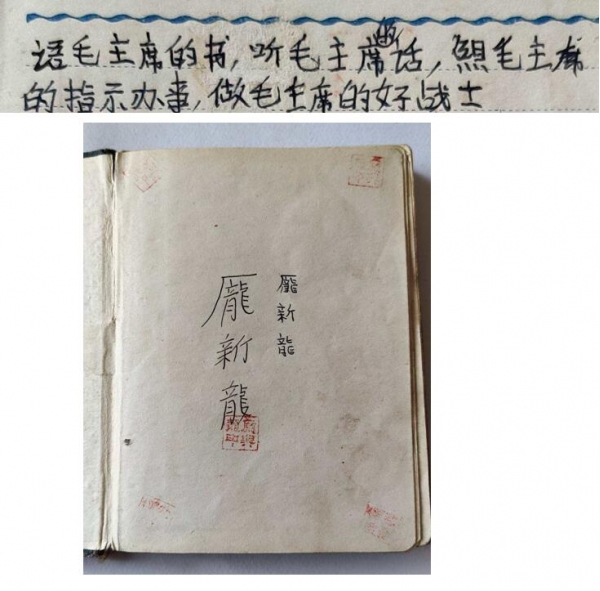 语毛主席的书,听毛主席的话,照毛主席
的指示办事,做毛主席的好战士
龎新龍
龎新龍